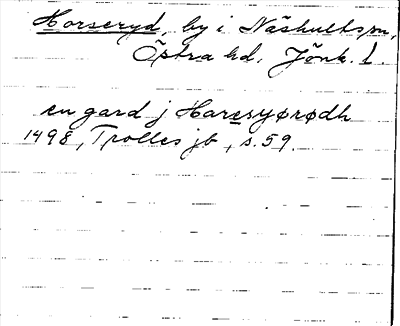 Horseryd, by i Näshults sn,
Östra hd. Jönk. l.
en gard j Haresyørødh
1498, Trolles jb, s. 59.